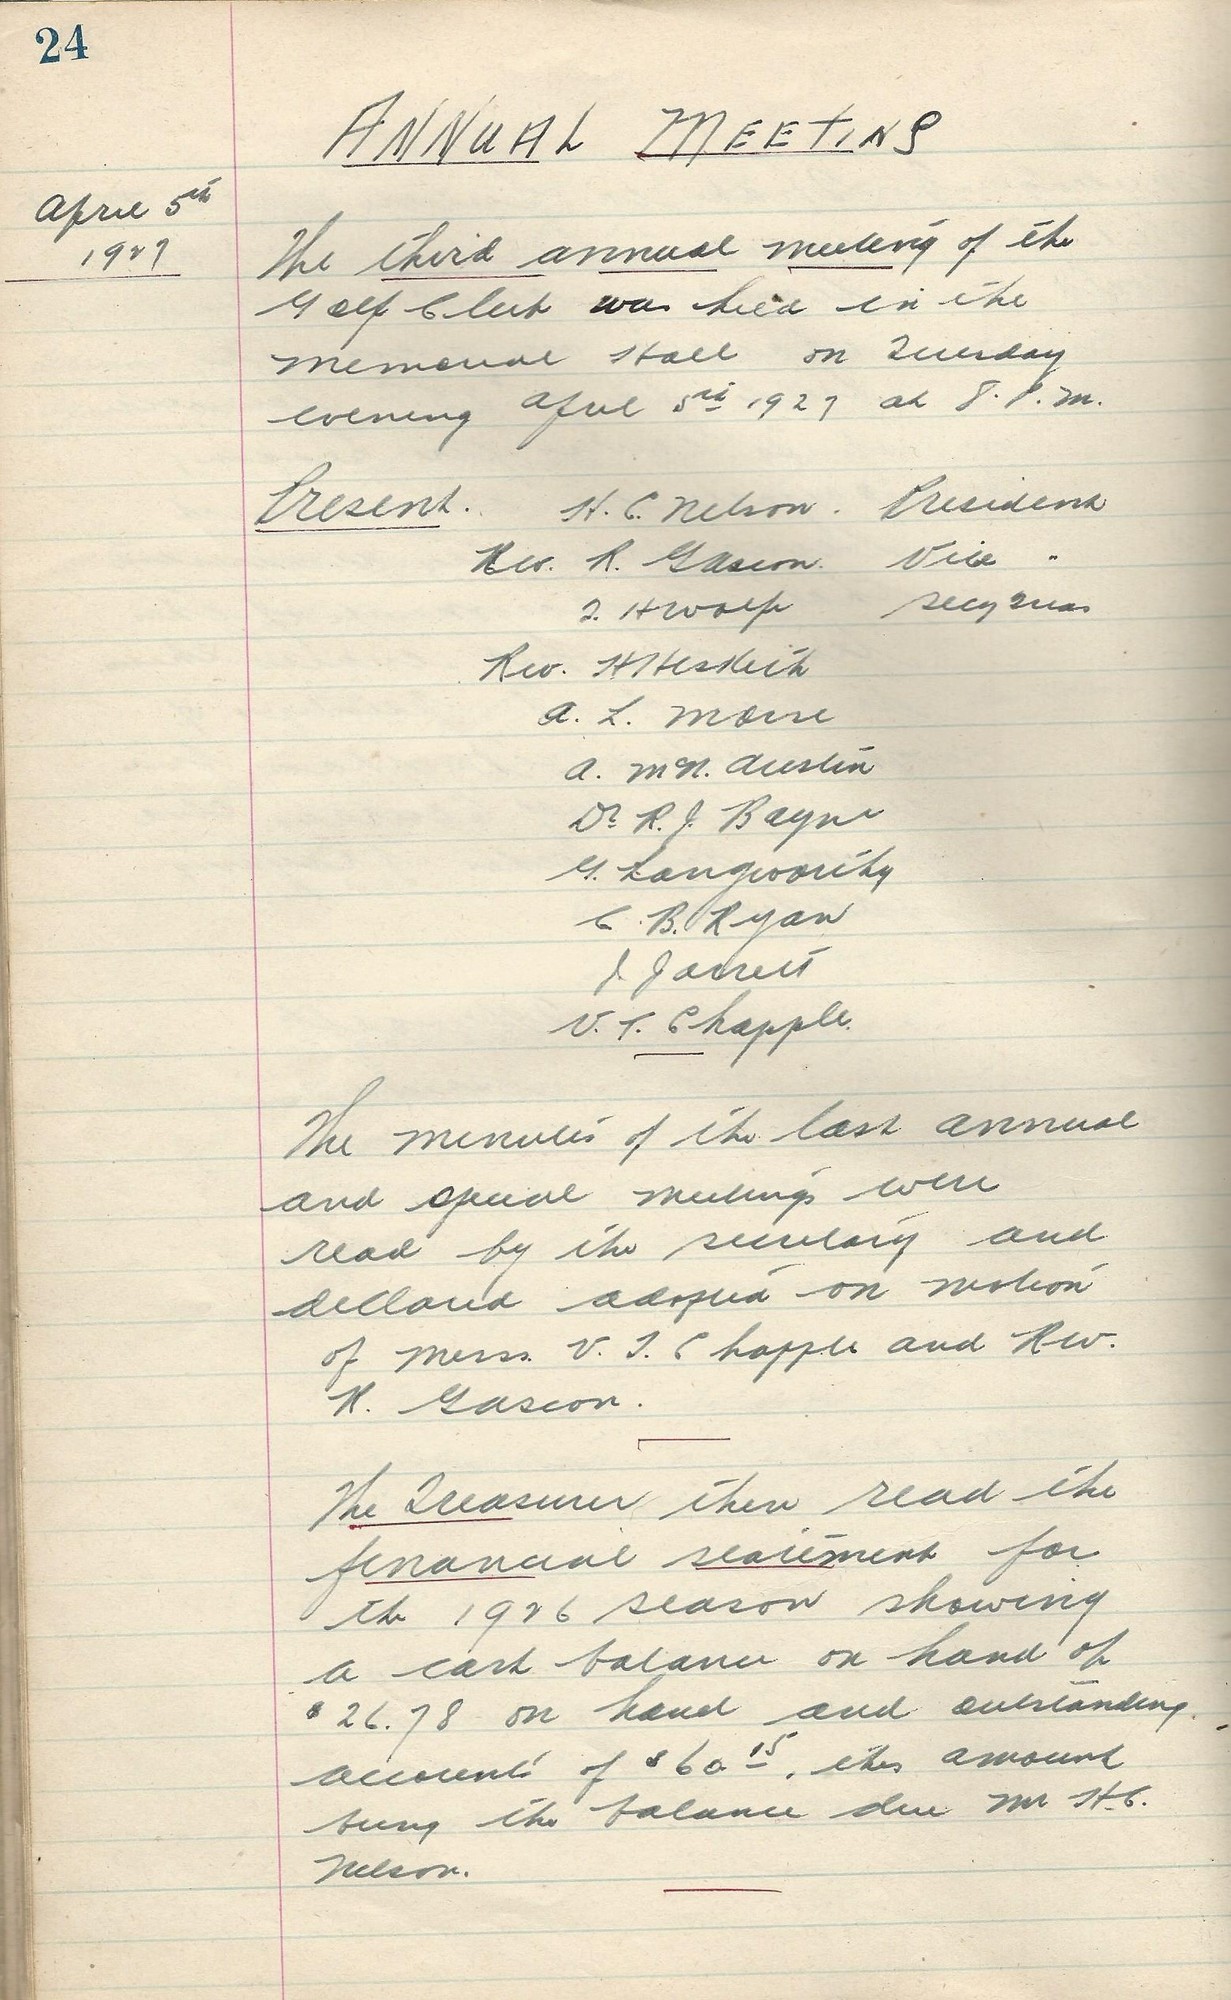 24
ANNUAL MEETING
April 5th
1927
The third annual meeting of the
Golf Club was held in the
Memorial Hall on Tuesday
evening April 5th 1927 at 8. P.m.
Present. H. C. Nelson. President
Rev. R. Gascon. Vice "
T. H Wolfe Secy Treas
Rev. H Hesketh
A. L. Morse
A. McN. Austin
Dr R. J. Bayne
G. Langworthy
C. B. Ryan
J. Jarrett
V. T. Chapple.
The minutes of the last annual
and special meetings were
read by the secretary and
declared adopted on motion
of Messs. V. T. Chapple and Rev.
R. Gascon.
The Treasurer then read the
financial statement for
the 1926 season showing
a cash balance on hand of
$26.78 on hand and outstanding
accounts of $60 15, this amount
being the balance due Mr H.C.
Nelson.